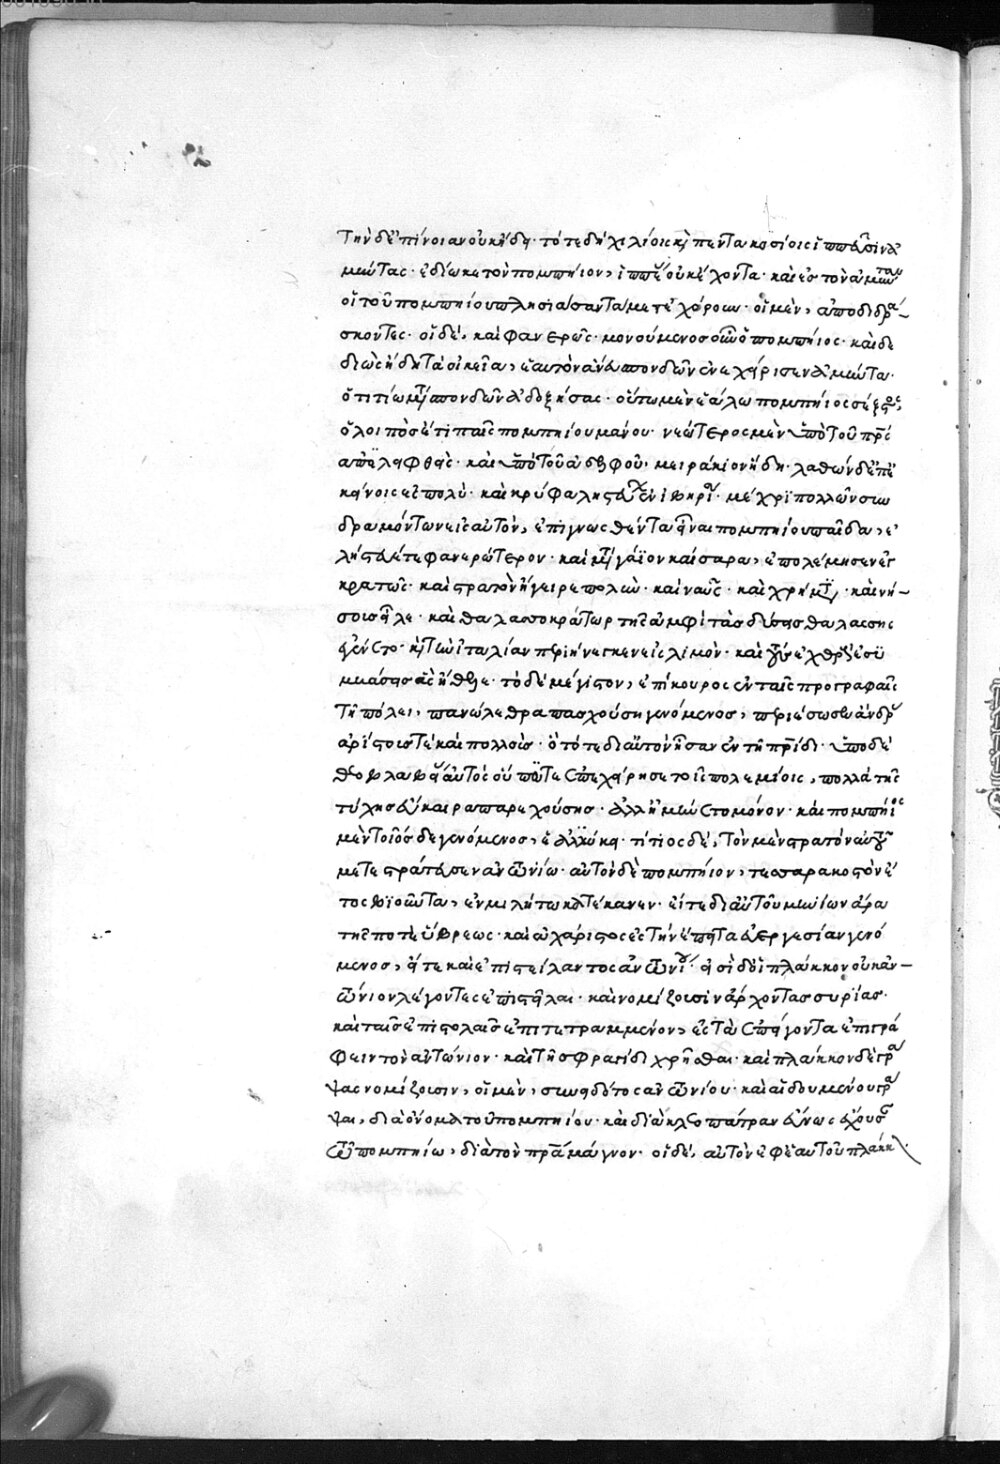 τὴν δ' ἐπίνοιαν οὐκ ᾔδη· τότε δὴ χιλίοις καὶ πεντακοσίοις ἱππεῦσιν ἀ
μύντας ἐδίωκε τὸν πομπήιον, ἱππέας οὐκ ἔχοντα· καὶ ἐς τὸν ἀμύνταν
οἱ τοῦ πομπηίου πλησιάσαντα μετεχώρουν· οἱ μὲν, ἀποδιδρά-
σκοντες· οἱ δὲ, καὶ φανερῶς· μονούμενος οὖν ὁ πομπήιος· καὶ δε
διὼς ἤδη τὰ οἰκεῖα, ἑαυτὸν ἄνευ σπονδῶν ἐνεχείρισεν ἀμύντα·
ὁ τιτίω μετὰ σπονδῶν ἀδοξήσας· οὕτω μὲν ἑάλω πομπήιος σέξστος,
ὁ λοιπὸς ἔτι παῖς πομπηίου μάγνου· νεώτερος μὲν ὑπὸ τοῦ πατρὸς
ἀπολειφθεὶς· καὶ ὑπὸ τοῦ ἀδελφοῦ· μειράκιον ἤδη· λαθὼν δ' ἐπ' ἐ
κείνοις ἐς πολὺ· καὶ κρύφα λῃστεύων ἐν ἰβηρία· μέχρι πολλῶν συν
δραμόντων εἰς αὐτὸν, ἐπιγνωσθέντα εἶναι πομπηίου παῖδα, ἐ
λῄστευέ τε φανερώτερον· καὶ μετὰ γάϊον καίσαρα, ἐπολέμησεν ἐγ
κρατῶς· καὶ στρατὸν ἤγειρε πολὺν· καὶ ναῦς· καὶ χρήματα· καὶ νή-
σους εἷλε· καὶ θαλασσοκράτωρ τῆς ἀμφὶ τὰς δύσεις θαλάσσης
ἐγένετο· καὶ τὴν ἰταλίαν περιήνεγκεν εἰς λιμὸν· καὶ τοὺς ἐχθροὺς ἐς οὓς
τὸ δὲ μέγιστον, ἐπίκουρος ἐν ταῖς προγραφαῖς
τῆ πόλει, πανώλεθρα πασχούση γενόμενος, περιέσωσεν ἄνδρας
ἀρίστους τε καὶ πολλοὺς· οἳ τότε δι' αὐτὸν ἦσαν ἐν τῆ πατρίδι· ὑπὸ δὲ
θεοβλαβείας αὐτὸς οὔποτε ἐπεχείρησε τοῖς πολεμίοις, πολλὰ τῆς
τύχης εὔκαιρα παρεχούσης· ἀλλ' ἠμύνετο μόνον· καὶ πομπήιος
μὲν τοιόσδε γενόμενος, ἑαλώκει· τίτιος δὲ, τὸν μὲν στρατὸν αὐτοῦ
μετεστράτευσεν ἀντωνίω· αὐτὸν δὲ πομπήιον, τεσσαρακοστὸν ἔ
τος βιοῦντα, ἐν μιλήτω κατέκανεν· εἴτε δι' αὑτοῦ μηνίων ἄρα
τῆς ποτὲ ὕβρεως· καὶ ἀχάριστος ἐς τὴν ἔπειτα εὐεργεσίαν γενό
μενος, εἴτε καὶ ἐπιστείλαντος ἀντωνίου· εἰσὶ δ' οἳ πλάγκον οὐκ ἀν-
τώνιον λέγοντες ἐπιστεῖλαι· καὶ νομίζουσιν ἄρχοντα συρίας·
καὶ ταῖς ἐπιστολαῖς ἐπιτετραμμένον, ἐς τὰ ἐπείγοντα ἐπιγρά
φειν τὸν ἀντώνιον· καὶ τῆ σφραγῖδι χρῆσθαι· καὶ πλάγκον δὲ γρά
ψαι νομίζουσιν, οἱ μὲν, συνειδότος ἀντωνίου· καὶ αἰδουμένου γρά
ψαι, διὰ ὄνομα τοῦ πομπηίου· καὶ διὰ κλεοπάτραν εὔνως ἔχουσαν
τῶ πομπηίω, διὰ τὸν πατέρα μάγνον· οἱ δὲ, αὐτὸν ἐφ' ἑαυτοῦ πλάγκ